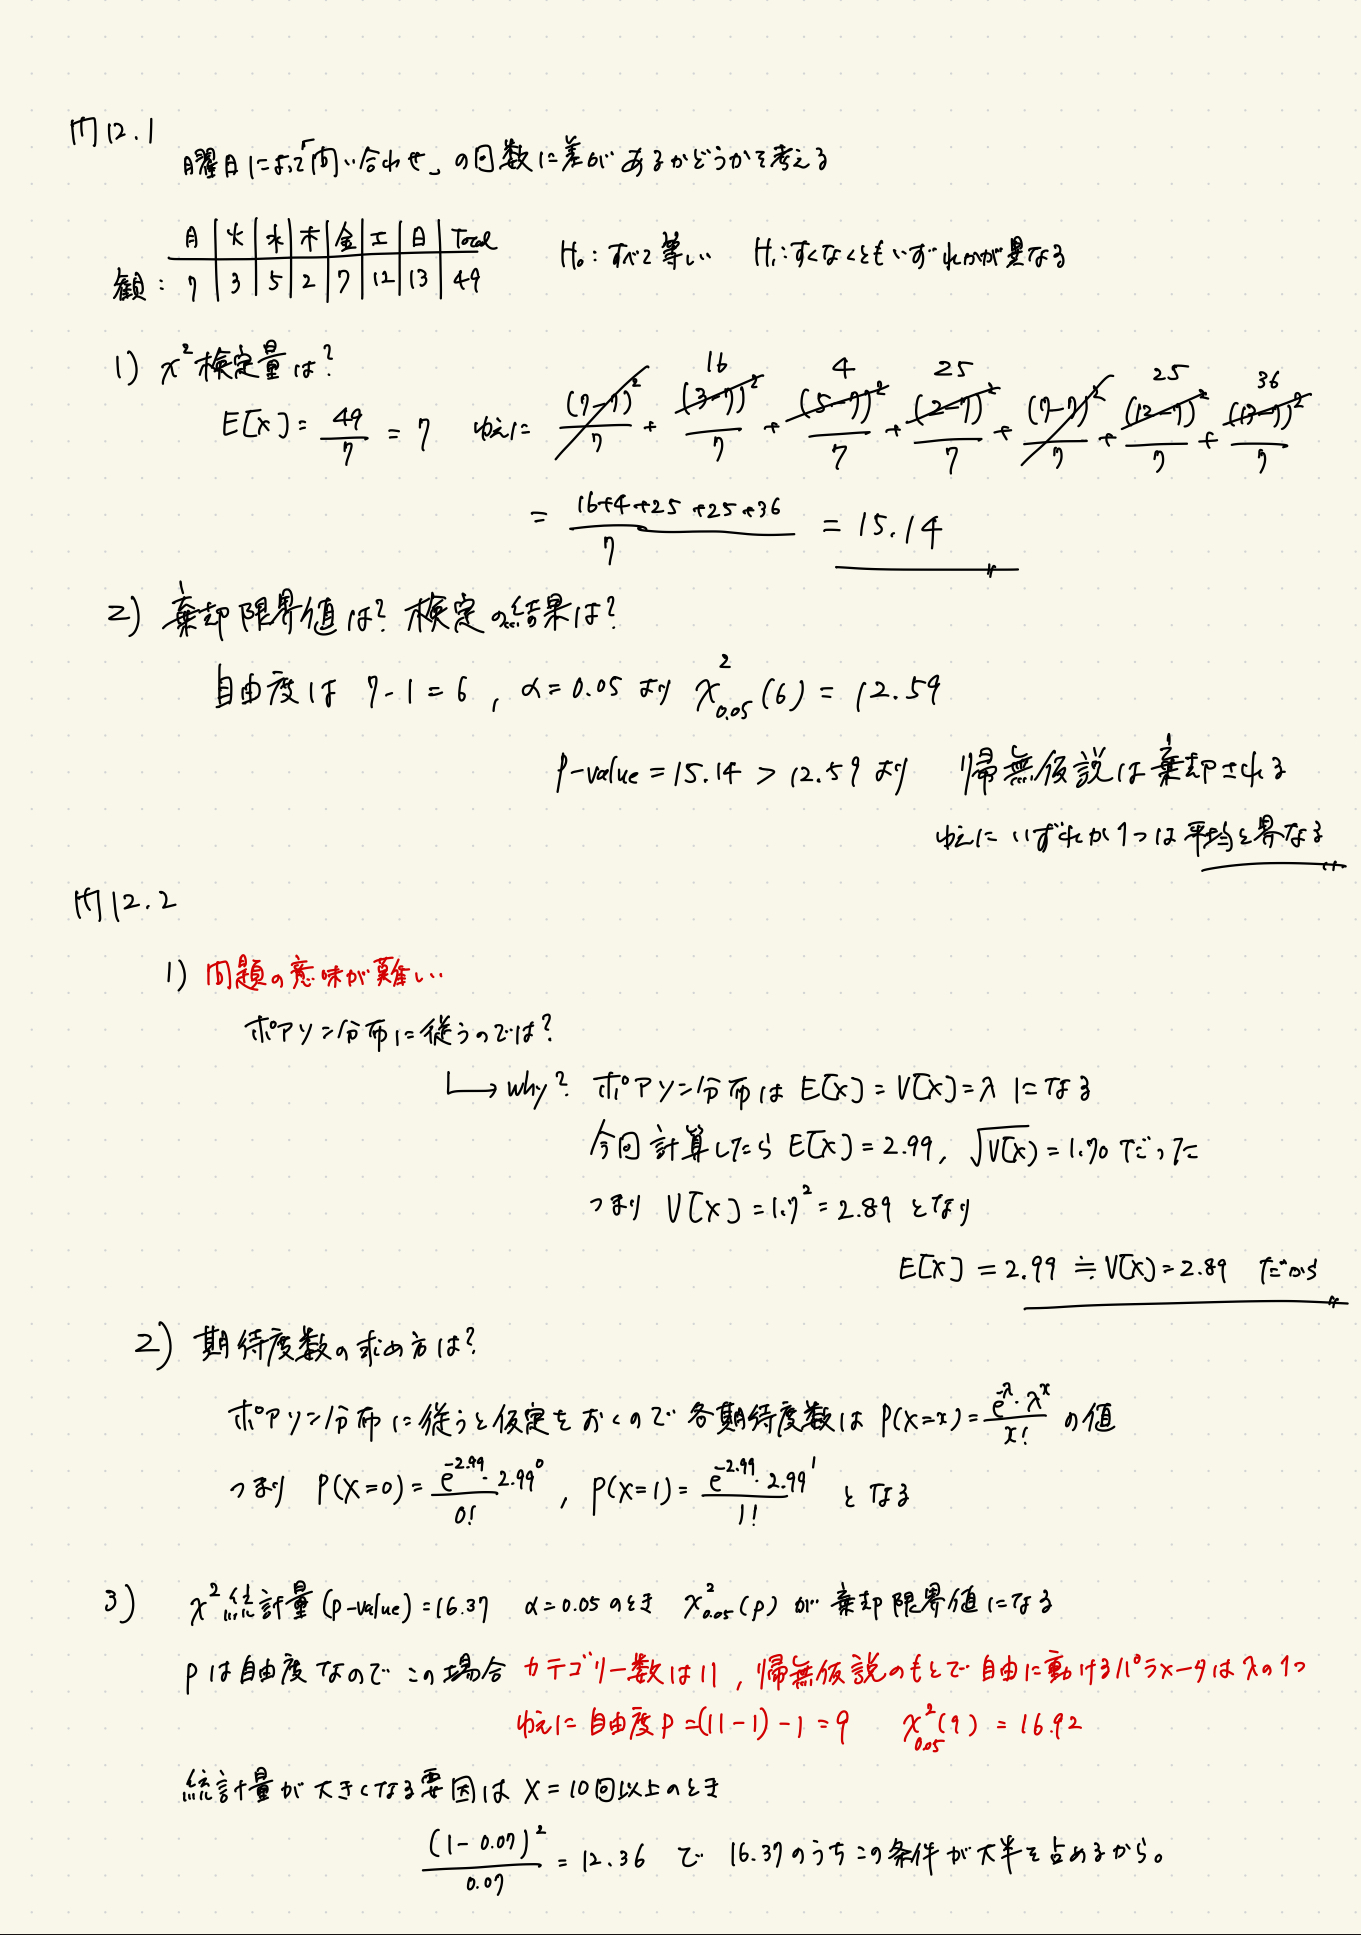 問12.1
曜日によって「問い合わせ」の回数に差があるかどうかを考える
月 火 水 木 金 土 日 Total
観: 7 3 5 2 7 12 13 49
H₀: すべて等しい H₁: すくなくともいずれかが異なる
1) χ²検定量は?
E[X] = 49/7 = 7 ゆえに (7-7)²/7 + (3-7)²/7 + (5-7)²/7 + (2-7)²/7 + (7-7)²/7 + (12-7)²/7 + (13-7)²/7
16 4 25 25 36
= (16+4+25+25+36)/7 = 15.14
2) 棄却限界値は? 検定の結果は?
自由度は 7-1=6, α=0.05 より χ²₀.₀₅(6) = 12.59
P-value = 15.14 > 12.59 より 帰無仮説は棄却される
ゆえに いずれか1つは平均と異なる
問12.2
1) 問題の意味が難しい
ポアソン分布に従うのでは?
↳ why? ポアソン分布は E[X] = V[X] = λ になる
今回計算したら E[X] = 2.99, √V(X) = 1.70 だった
つまり V[X] = 1.7² = 2.89 となり
E[X] = 2.99 ≒ V(X) = 2.89 だから
2) 期待度数の求め方は?
ポアソン分布に従うと仮定をおくので 各期待度数は P(X=x) = e^-λ・λ^x / x! の値
つまり P(X=0) = e^-2.99・2.99⁰ / 0! , P(X=1) = e^-2.99・2.99¹ / 1! となる
3) χ²統計量 (p-value) = 16.37 α=0.05 のとき χ²₀.₀₅(p) が 棄却限界値になる
Pは自由度なので この場合 カテゴリー数は11, 帰無仮説のもとで自由に動けるパラメータはλの1つ
ゆえに 自由度 P = (11-1)-1 = 9 χ²₀.₀₅(9) = 16.92
統計量が大きくなる要因は X = 10回以上のとき
(1-0.07)²/0.07 = 12.36 で 16.37のうちこの条件が大半を占めるから。